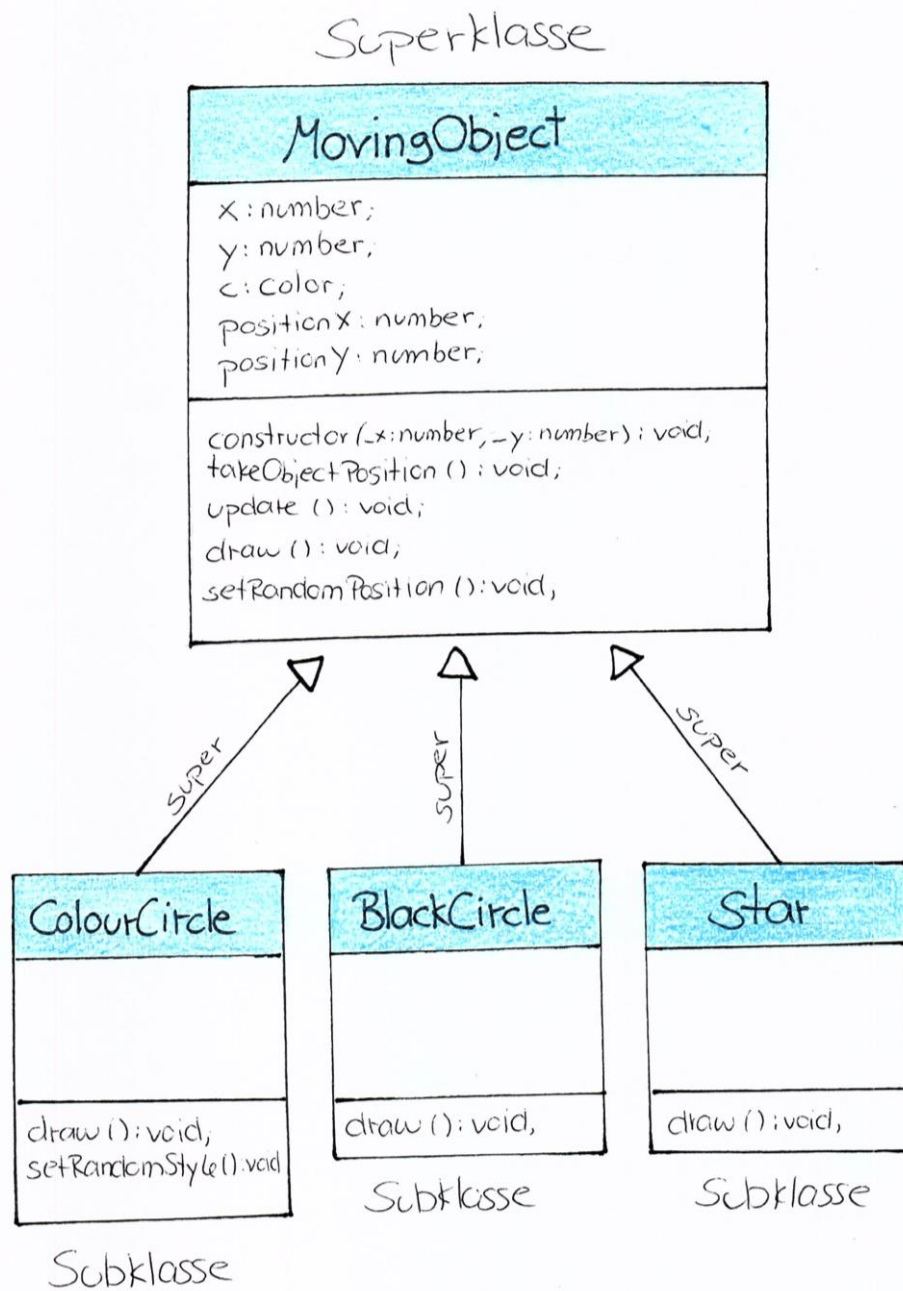 Superklasse
MovingObject
x: number;
y: number;
c: color;
positionX: number;
positionY: number;
constructor(_x:number, _y: number): void;
takeObjectPosition(): void;
update (): void;
draw (): void;
setRandomPosition (): void;
super
super
super
ColourCircle
BlackCircle
Star
draw (): void;
setRandomStyle(): void
draw (): void;
draw (): void;
Subklasse
Subklasse
Subklasse